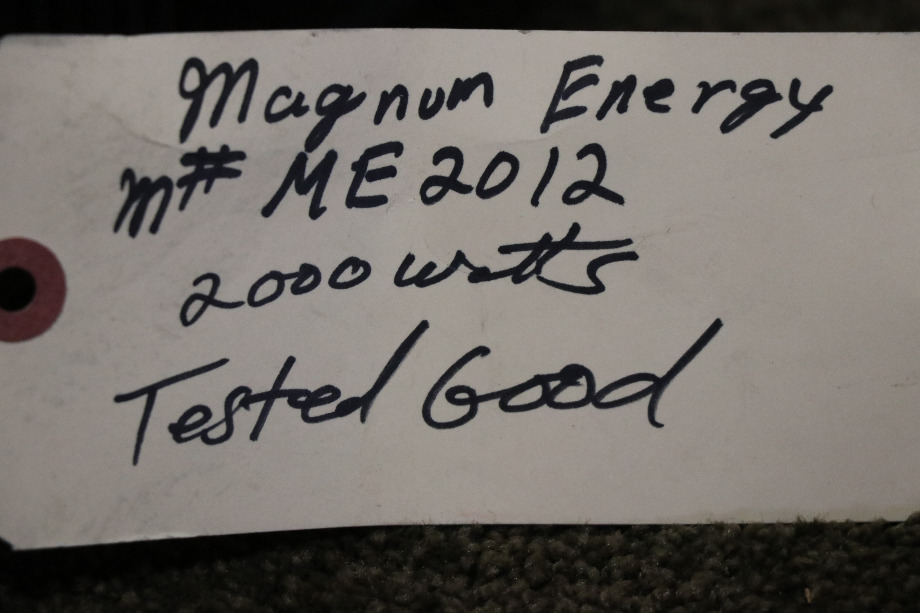 Magnum Energy
M# ME2012
2000 watts
Tested Good